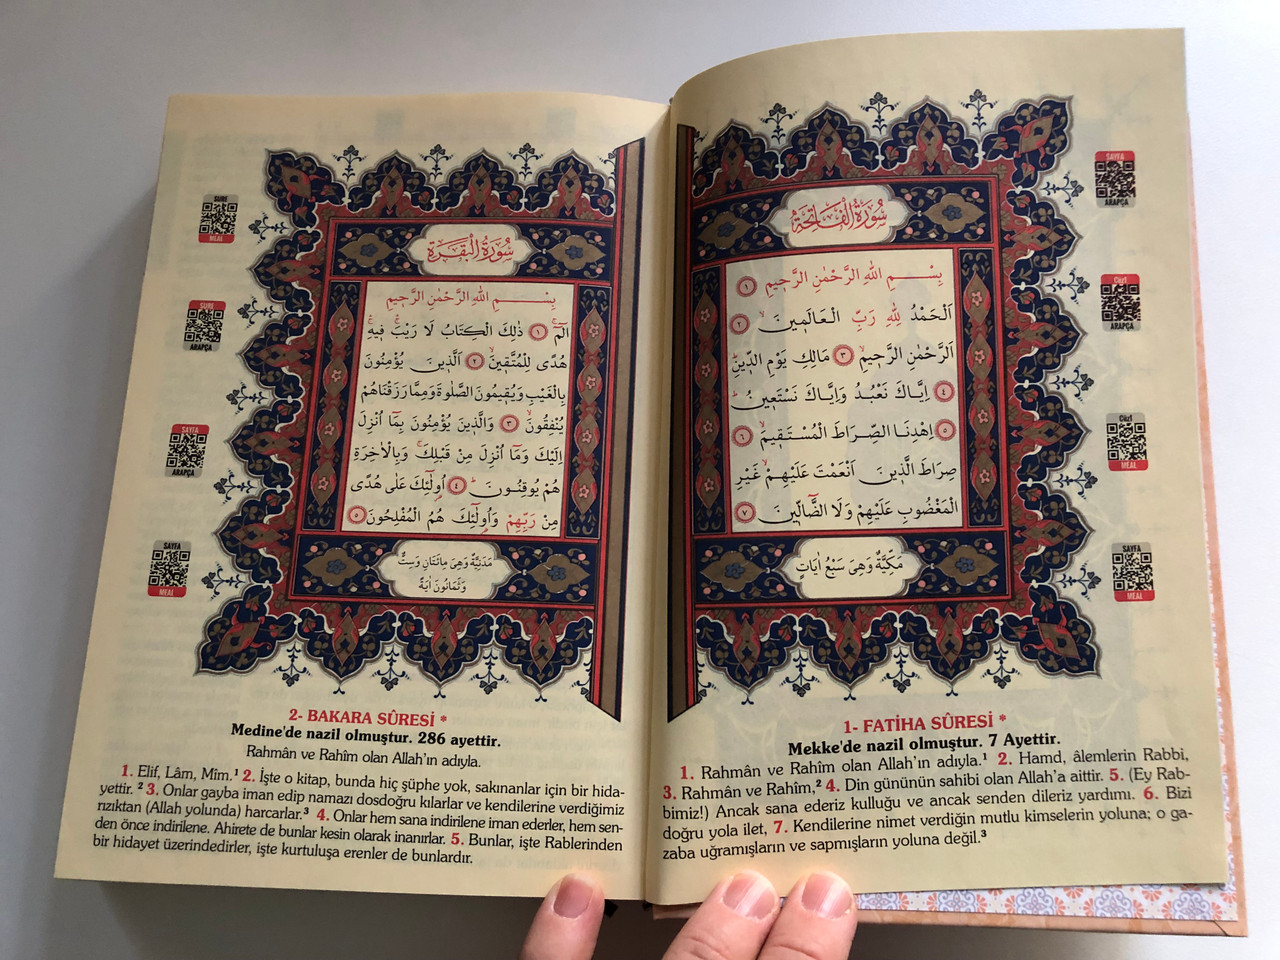 سُورَةُ الْفَاتِحَةِ
بِسْمِ اللهِ الرَّحْمٰنِ الرَّحِيمِ ﴿١﴾
اَلْحَمْدُ لِلّٰهِ رَبِّ الْعَالَمِينَۙ ﴿٢﴾
اَلرَّحْمٰنِ الرَّحِيمِۙ ﴿٣﴾ مَالِكِ يَوْمِ الدِّينِۜ
﴿٤﴾ اِيَّاكَ نَعْبُدُ وَاِيَّاكَ نَسْتَعِينُۜ
﴿٥﴾ اِهْدِنَا الصِّرَاطَ الْمُسْتَقِيمَۙ ﴿٦﴾
صِرَاطَ الَّذِينَ اَنْعَمْتَ عَلَيْهِمْۙ غَيْرِ
الْمَغْضُوبِ عَلَيْهِمْ وَلَا الضَّٓالِّينَ ﴿٧﴾
مَكِّيَّةٌ وَهِيَ سَبْعُ اٰيَاتٍ
SAYFA
ARAPÇA
CÜZ
ARAPÇA
CÜZ
MEAL
SAYFA
MEAL
1- FATİHA SÛRESİ *
Mekke'de nazil olmuştur. 7 Ayettir.
1. Rahmân ve Rahîm olan Allah'ın adıyla.¹ 2. Hamd, âlemlerin Rabbi,
3. Rahmân ve Rahîm,² 4. Din gününün sahibi olan Allah'a aittir. 5. (Ey Rab-
bimiz!) Ancak sana ederiz kulluğu ve ancak senden dileriz yardımı. 6. Bizi
doğru yola ilet, 7. Kendilerine nimet verdiğin mutlu kimselerin yoluna; o ga-
zaba uğramışların ve sapmışların yoluna değil.³
سُورَةُ الْبَقَرَةِ
بِسْمِ اللهِ الرَّحْمٰنِ الرَّحِيمِ
الٓمٓۚ ﴿١﴾ ذٰلِكَ الْكِتَابُ لَا رَيْبَۚ فِيهِۚ
هُدًى لِلْمُتَّقِينَۙ ﴿٢﴾ اَلَّذِينَ يُؤْمِنُونَ
بِالْغَيْبِ وَيُقِيمُونَ الصَّلٰوةَ وَمِمَّا رَزَقْنَاهُمْ
يُنْفِقُونَۙ ﴿٣﴾ وَالَّذِينَ يُؤْمِنُونَ بِمَٓا اُنْزِلَ
اِلَيْكَ وَمَٓا اُنْزِلَ مِنْ قَبْلِكَۚ وَبِالْاٰخِرَةِ
هُمْ يُوقِنُونَۜ ﴿٤﴾ اُو۬لٰٓئِكَ عَلٰى هُدًى
مِنْ رَبِّهِمْ وَاُو۬لٰٓئِكَ هُمُ الْمُفْلِحُونَ ﴿٥﴾
مَدَنِيَّةٌ وَهِيَ مِائَتَانِ وَسِتٌّ
وَثَمَانُونَ اٰيَةً
SURE
MEAL
SURE
ARAPÇA
SAYFA
ARAPÇA
SAYFA
MEAL
2- BAKARA SÛRESİ *
Medine'de nazil olmuştur. 286 ayettir.
Rahmân ve Rahîm olan Allah'ın adıyla.
1. Elif, Lâm, Mîm.¹ 2. İşte o kitap, bunda hiç şüphe yok, sakınanlar için bir hida-
yettir. ² 3. Onlar gayba iman edip namazı dosdoğru kılarlar ve kendilerine verdiğimiz
rızıktan (Allah yolunda) harcarlar.³ 4. Onlar hem sana indirilene iman ederler, hem sen-
den önce indirilene. Ahirete de bunlar kesin olarak inanırlar. 5. Bunlar, işte Rablerinden
bir hidayet üzerindedirler, işte kurtuluşa erenler de bunlardır.